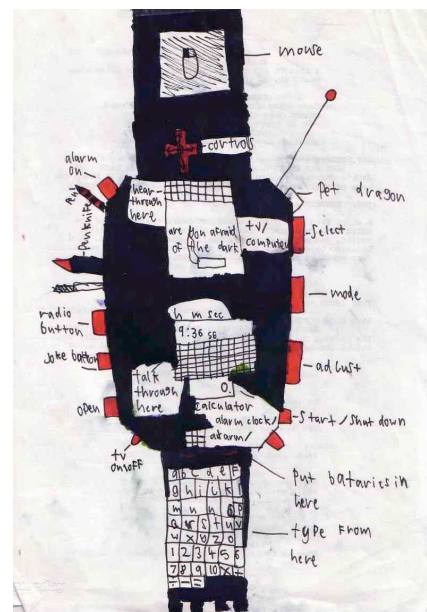 mouse
controls
alarm
on
pen
penknife
hear
through
here
Pet dragon
are you afraid
of the dark
tv/
computer
select
mode
h m sec
9:36 56
radio
button
joke button
adjust
talk
through
here
0
calculator
alarm clock/
alarm/
open
start/shut down
tv
on/off
Put bataries in
here
a b c d e f
g h i j k l
m n n o p
q r s t u v
w x y z 0
1 2 3 4 5 6
7 8 9 10 x +
type from
here